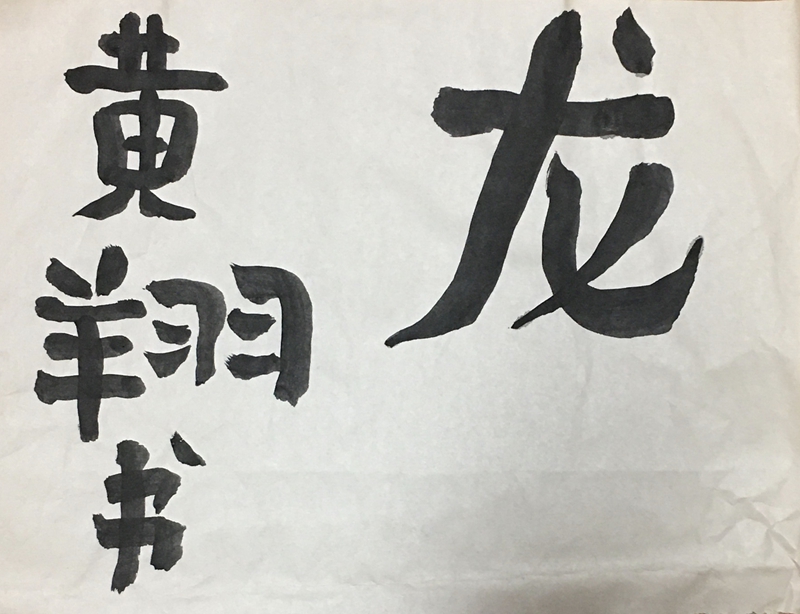 龙
黄翔书